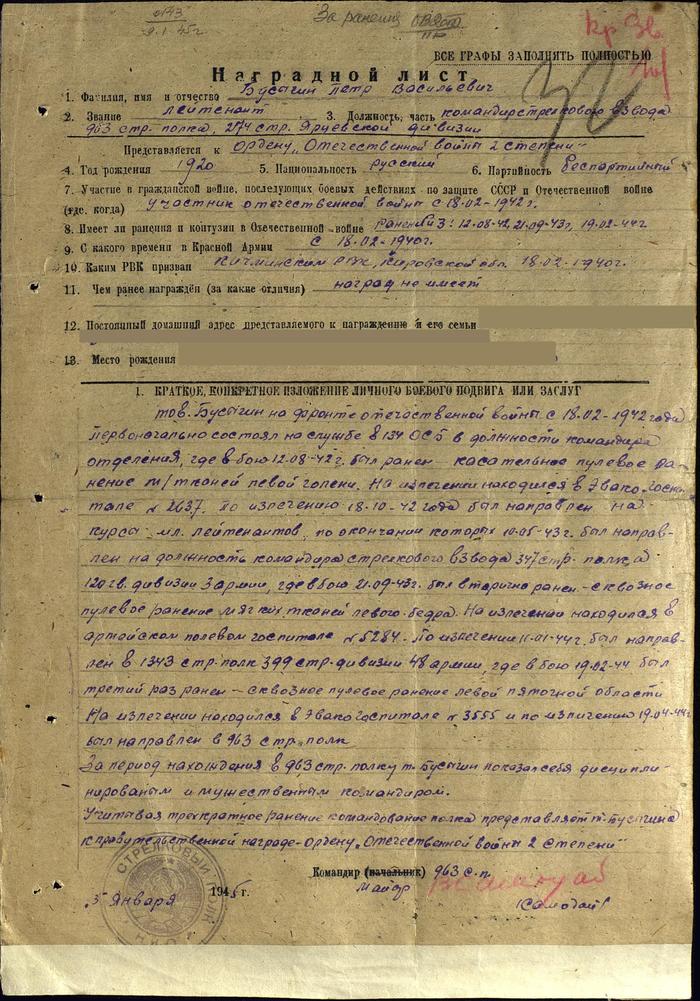 0143
9.1.45г
За ранения ОВ2ст
Кр Зв
ВСЕ ГРАФЫ ЗАПОЛНЯТЬ ПОЛНОСТЬЮ
Наградной лист
1. Фамилия, имя и отчество Бусыгин Петр Васильевич
2. Звание Лейтенант 3. Должность, часть командир стрелкового взвода
963 стр. полка, 274 стр. Ярцевской дивизии
Представляется к Ордену „Отечественной войны 2 степени"
4. Год рождения 1920 5. Национальность русский 6. Партийность беспартийный
7. Участие в гражданской войне, последующих боевых действиях по защите СССР и Отечественной войне
(где, когда) участник отечественной войны с 18.02-1942г.
8. Имеет ли ранения и контузии в Отечественной войне Ранений 3: 12.08-42, 21.09-43г, 19.02-44г.
9. С какого времени в Красной Армии с 18.02-1940г.
10. Каким РВК призван Кичминским РВК, Кировской обл. 18.02-1940г.
11. Чем ранее награждён (за какие отличия) наград не имеет
12. Постоянный домашний адрес представляемого к награждению и его семьи
13. Место рождения
1. КРАТКОЕ, КОНКРЕТНОЕ ИЗЛОЖЕНИЕ ЛИЧНОГО БОЕВОГО ПОДВИГА ИЛИ ЗАСЛУГ
тов. Бусыгин на фронте отечественной войны с 18.02-1942 года
первоначально состоял на службе в 134 ОСБ в должности командира
отделения, где в бою 12.08-42г. был ранен касательное пулевое ра-
нение м/тканей левой голени. На излечении находился в Эвакогоспи-
тале № 2637. По излечению 18-10-42 года был направлен на
курсы мл. лейтенантов, по окончании которых 10-05-43г. был направ-
лен на должность командира стрелкового взвода 347 стр. полка
120 гв. дивизии 3 армии, где в бою 21.09-43г. был вторично ранен - сквозное
пулевое ранение мягких тканей левого бедра. На излечении находился в
армейском полевом госпитале №5284. По излечении 11-01-44г. был направ-
лен в 1343 стр. полк 399 стр. дивизии 48 армии, где в бою 19.02-44 был
третий раз ранен - сквозное пулевое ранение левой пяточной области
На излечении находился в Эвакогоспитале № 3555 и по излечению 19.04-44г
был направлен в 963 стр. полк
За период нахождения в 963 стр. полку т. Бусыгин показал себя дисципли-
нированым и мужественным командиром.
Учитывая трехкратное ранение командование полка представляет т. Бусыгина
к правительственной награде - Ордену „Отечественной войны 2 степени"
Командир (начальник) 963 с.п.
Майор
5 Января 1945 г.
СТРЕЛКОВЫЙ ПОЛК